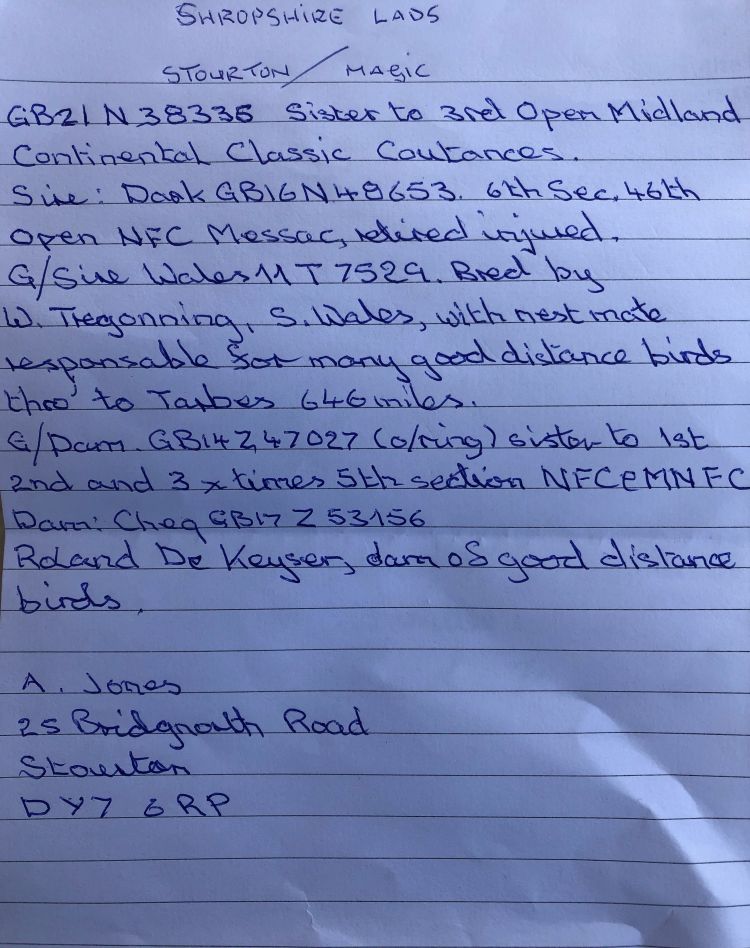 SHROPSHIRE LADS
STOURTON / MAGIC
GB21 N 38335 Sister to 3rd Open Midland
Continental Classic Coutances.
Sire: Dark GB16N48653. 6th Sec, 46th
Open NFC Messac, retired injured.
G/Sire Wales 11 T 7529. Bred by
W. Tregonning, S. Wales, with nest mate
responsable for many good distance birds
thro' to Tarbes 646 miles.
G/Dam. GB14Z47027 (o/ring) sister to 1st
2nd and 3 x times 5th section NFC & MNFC
Dam: Cheq GB17 Z 53156
Roland De Keyser, dam of good distance
birds.
A. Jones
25 Bridgnorth Road
Stourton
DY7 6RP